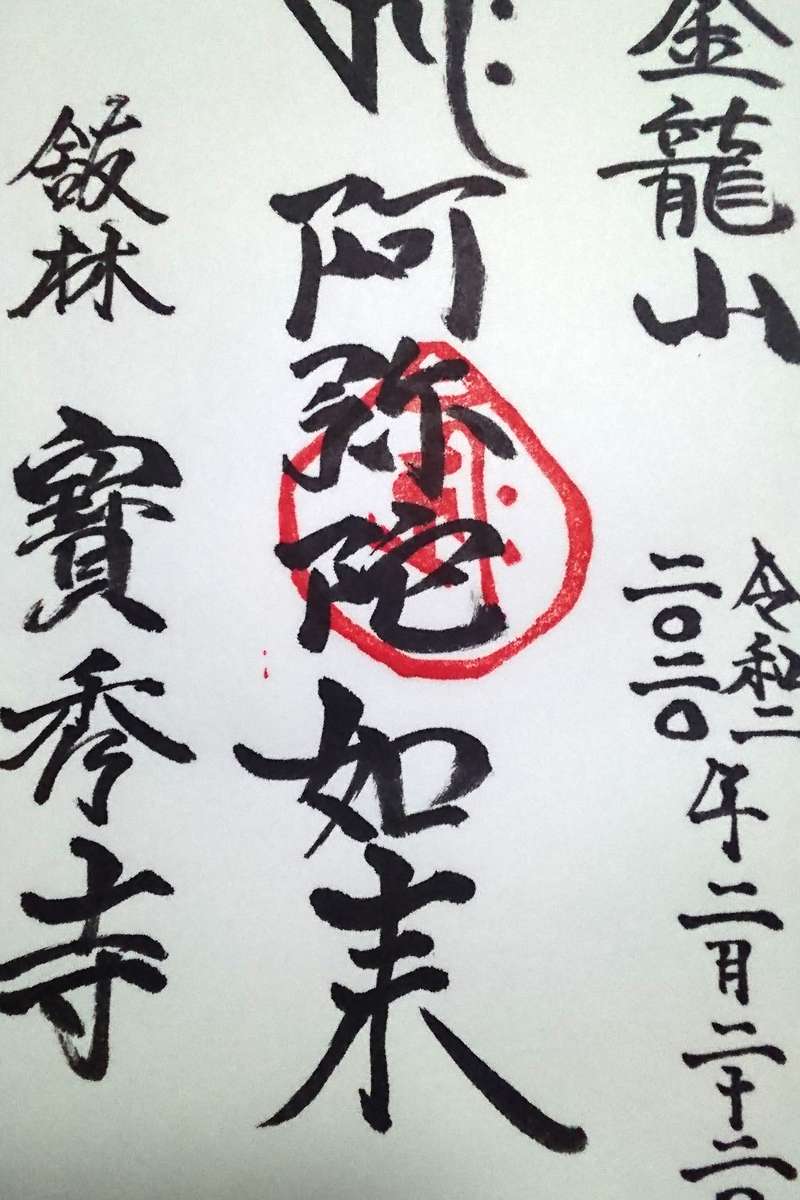 金龍山
令和二
二〇二〇
年二月二十二
阿弥陀如来
舘林
寶秀寺